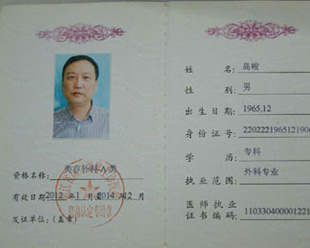 资格名称:
有效日期2012年1月2014年2月
发证单位:(盖章)
姓名: 高峻
性别: 男
出生日期 1965.12
身份证号: 22022219651219
学历: 专科
执业范围: 外科专业
医师执业
证书编码: 1103304000122